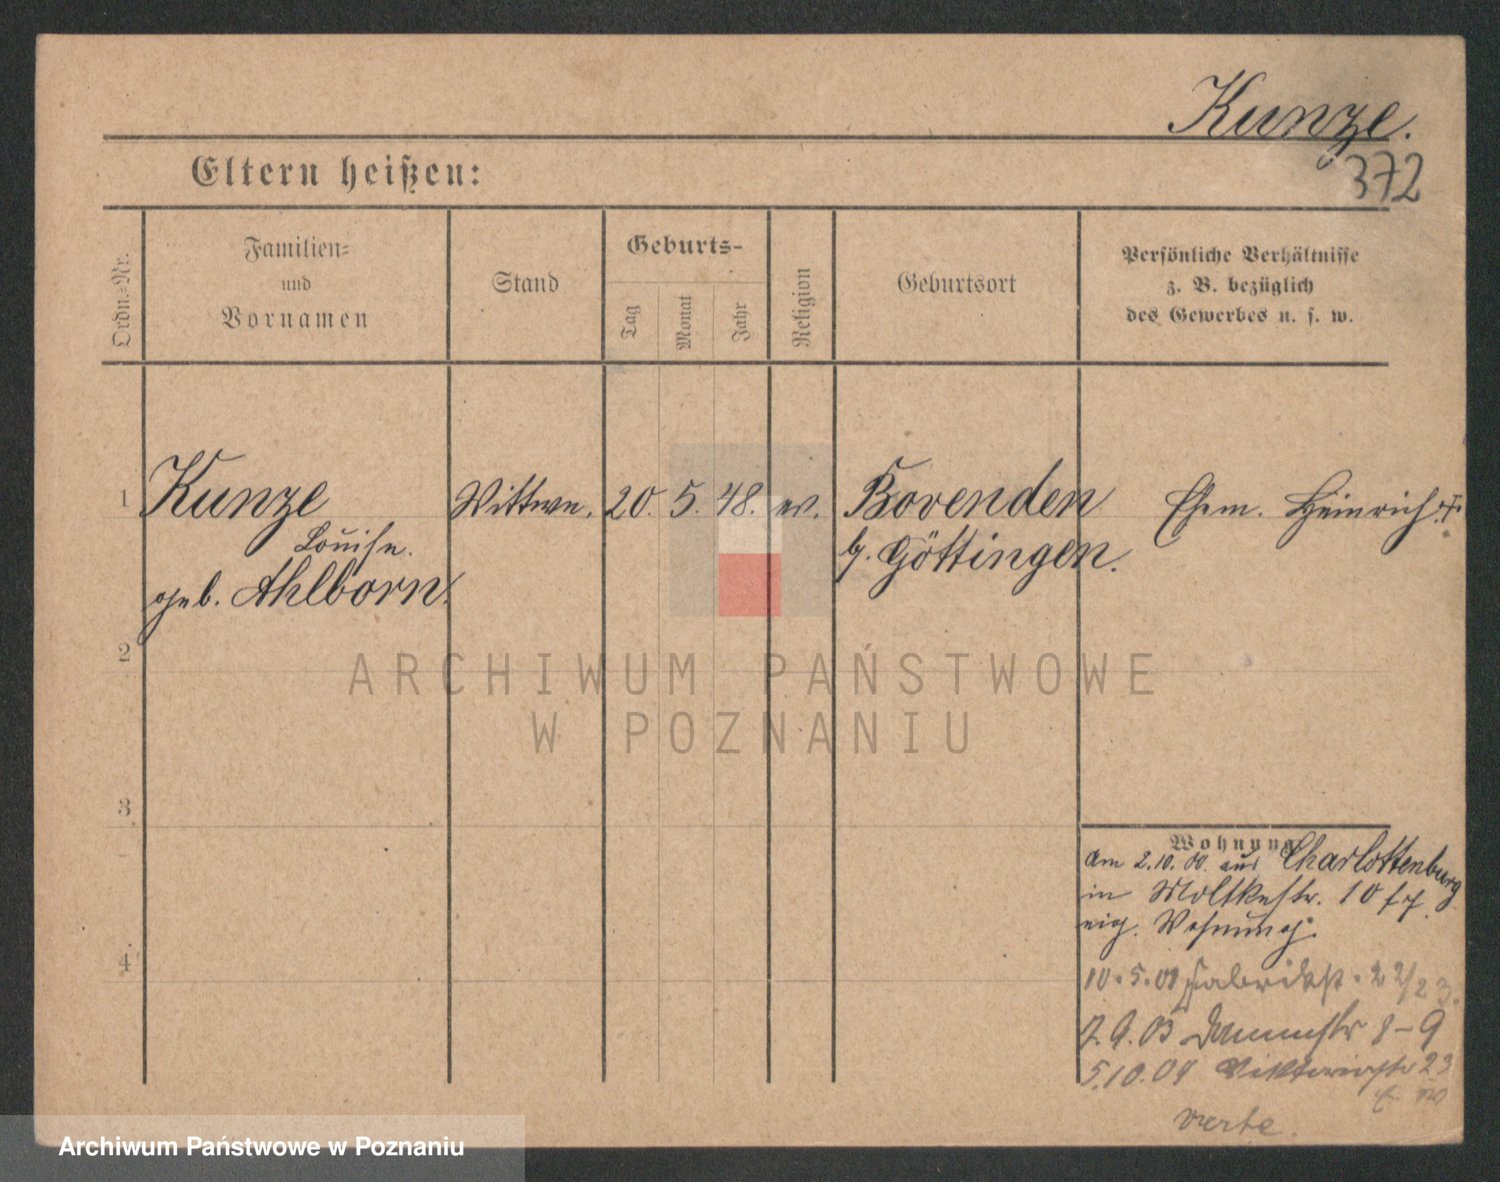 Kunze.
372
Eltern heißen:
Ordn.-Nr.
Familien-
und
Vornamen
Stand
Geburts-
Tag
Monat
Jahr
Religion
Geburtsort
Persönliche Verhältnisse
z. B. bezüglich
des Gewerbes u. s. w.
1 Kunze Wittwe. 20. 5. 48. ev. Bovenden Ehem. Heinrich †.
Louise. b. Göttingen.
geb. Ahlborn.
2
ARCHIWUM PAŃSTWOWE
W POZNANIU
3
Wohnung
Am 2.10.00 aus Charlottenburg
in Moltkestr. 10
eig. Wohnung.
4
10.5.01 Fabrikst. 22/23.
7.9.03 Dammstr 8-9
5.10.04 Viktoriastr 23
verte.
Archiwum Państwowe w Poznaniu